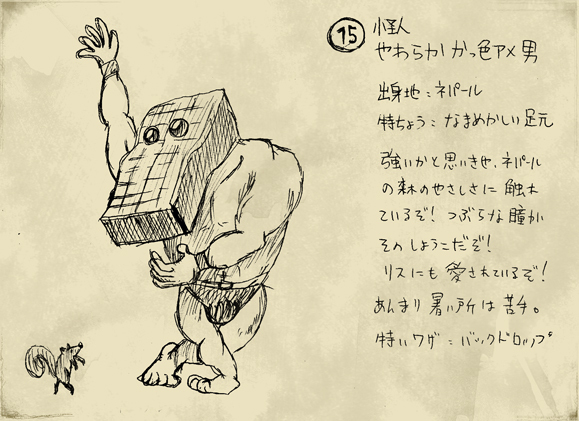 15 小怪人
やわらかかっ色アメ男
出身地:ネパール
特ちょう:なまめかしい足元
強いかと思いきや、ネパール
の森のやさしさに触れ
ているぞ!つぶらな瞳が
そのしょうこだぞ!
リスにも愛されているぞ!
あんまり暑い所は苦手。
特いワザ:バックドロップ